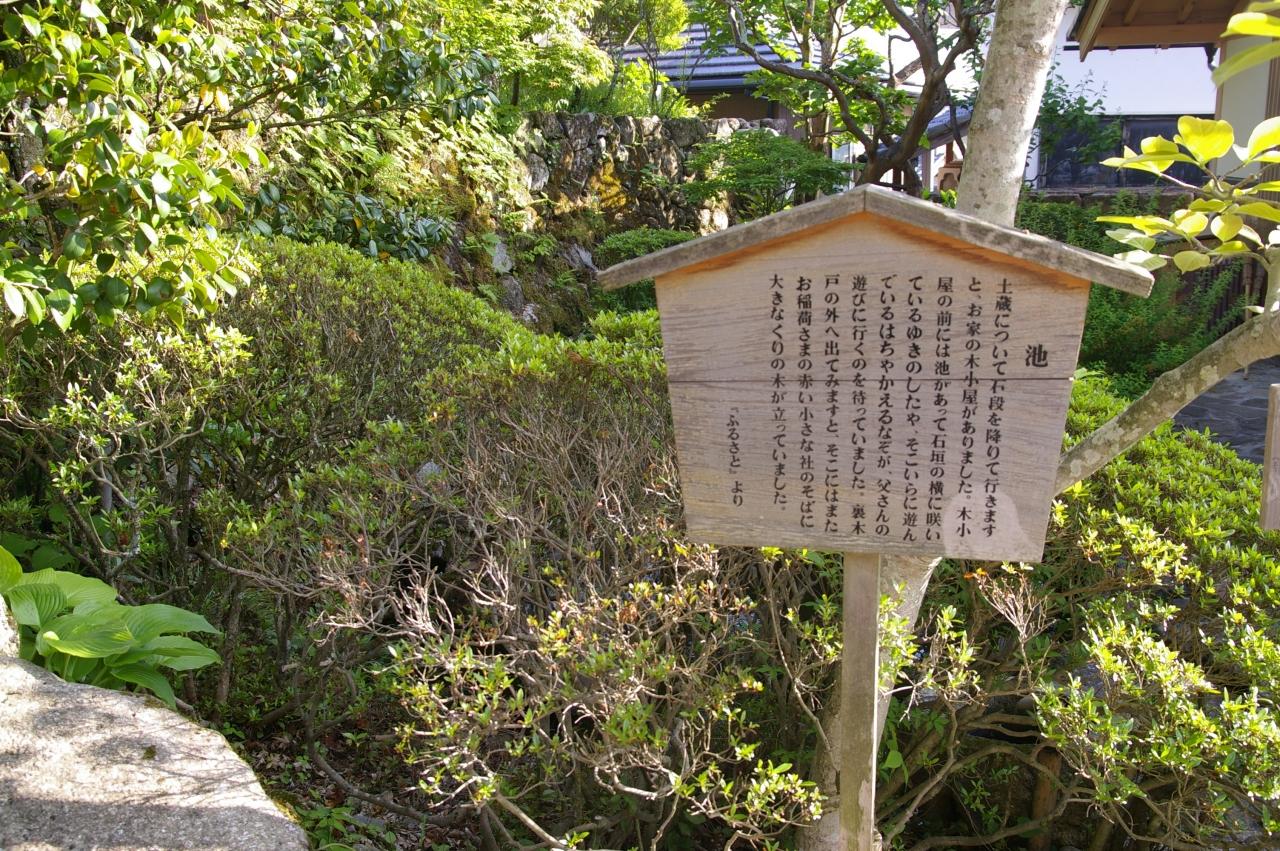 池
土蔵について石段を降りて行きます
と、お家の木小屋がありました。木小
屋の前には池があって石垣の横に咲い
ているゆきのしたや、そこいらに遊ん
でいるはちやかえるなぞが、父さんの
遊びに行くのを待っていました。裏木
戸の外へ出てみますと、そこにはまた
お稲荷さまの赤い小さな社のそばに
大きなくりの木が立っていました。
『ふるさと』より